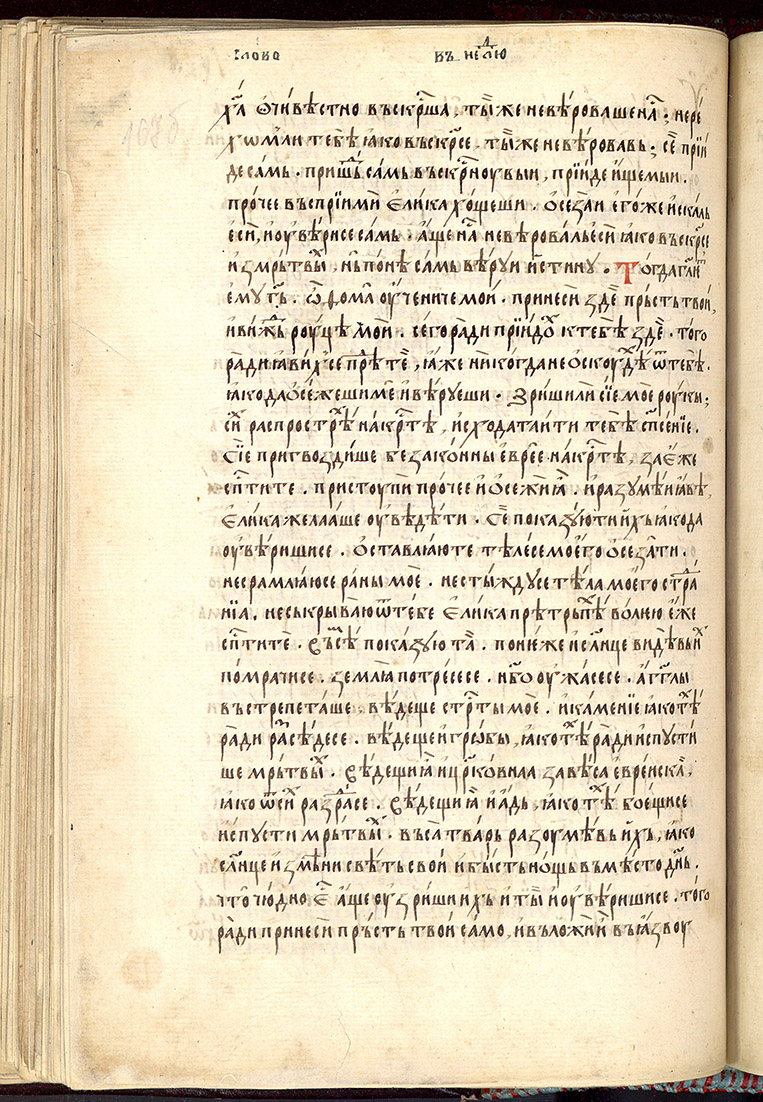 слово въ недⷧ҇ю
хⷭ҇а ѻчивѣстно въскрⷭ҇ша, ты́ же невѣ́ровашена̑; нере́
хѡмли тебѣ̀ ꙗ҆ко въскрⷭ҇се. ты́ же не вѣ́ровавь; се҆ прїи́
де са́мь. прише́ⷣ са́мь въскрⷭ҇ноувыи, прїи́де и҆́щемыи.
про́чее въспрїими̑ є҆ли́ка хо́щеши. ѻ҆сеза́и є҆го́же и҆ска́ль
є҆сѝ, и҆ оу҆вѣ́рисе са́мь. а҆́ще на̑ не вѣ́роваль є҆сѝ ꙗ҆ко въскрⷭ҇се
и҆з мрь́твыⷯ, нь̀ понѐ са́мь вѣ́руи и҆́стину. То́гда гл҃иⷮ
є҆мѹ гь҃. ѽ ѳѡма̀ оу҆́чениче мо́и. принесѝ зде̑ прь́сть тво́и,
и҆ ви́жⷣь роу́цѣ мо́и. сего̀ ра́ди прїидо́ⷯ к тебѣ̀ зде̑. того̀
ра́ди ꙗ҆ви́хсе прⷣѣ те́, ꙗ҆́же никогда не ѻ҆скоу́дѣ ѿ тебѣ̀.
ꙗ҆ко да ѻ҆се́жеши ме̑ и҆ вѣ́руеши. Зри́ши ли сїе̑ мо́е роу́кы;
сїѝ распростр꙯ѣ́ на крⷭ҇тѣ, и҆схода́таити тебѣ̀ сп҃се́нїе.
Сїе̑ пригвозди́ше безако́нны є҆вре́е на крⷭ҇тѣ, за є҆́же
сп҃ти те. пристоупѝ про́чее и҆ ѻ҆сежѝ ꙗ҆̑. и҆ разумѣ́и ꙗ҆вѣ̀,
є҆ли́ка жела́аше оу҆вѣ́дѣти. Се̑ показу́ю ти и҆́хь ꙗ҆ко да
оу҆вѣ́ришисе. Ѻ҆ставлꙗ́ю те тѣлесе моего̀ ѻ҆сеза́ти.
не срамлꙗ́юсе ра́ны мо́е. не сты́ждусе тѣ́ла моего̀ стрⷣа́
нїа. не съкрыва́ю ѿ тебе є҆ли́ка прѣтрьпѣ́ⷯ во́лею є҆́же
сп҃ти те̑. показу́ю та̑. поне́же и҆ сл҃нце ви́дѣвьиⷯ
помрачи́се. землꙗ̀ потре́сесе. нб҃о оу҆жа́сесе. а҆гг҃лы
въстрепета́ше, вѣ́деще стрⷭ҇ты мо́е. и҆ ка́менїе ꙗ҆ко тѣ́ⷯ
ра́ди ра́сѣдесе. вѣ́деще и҆ гро́бы, ꙗ҆ко тѣ́ⷯ ра́ди и҆спусти́
ше мрь́твыⷯ. Вѣ́дещи ꙗ҆̑ и҆ цр҃ко́внаа завѣ́са є҆вре́искаа,
ꙗ҆ко ѿ си́ⷯ раздра́се. Вѣ́дещи ꙗ҆̑ и҆ а҆дь, ꙗ҆ко тѣ́ⷯ бое́щисе
и҆спусти̑ мрь́твыⷯ. въса̀ тва́рь разоумѣ́вь и҆хъ, ꙗ҆ко
сл҃нце и҆змѣнѝ свѣ́ть сво́и и҆ бы́сть но́щь въмѣ́сто дн҃ь.
что̀ чю́дно є҆ⷭ҇ а҆́ще оу҆́зриши и҆хь и҆ ты̀ и҆ оу҆вѣ́ришисе. того̀
ра́ди принесѝ прь́сть тво́и само, и҆ въложѝ и҆̀ въ ꙗ҆́звоу